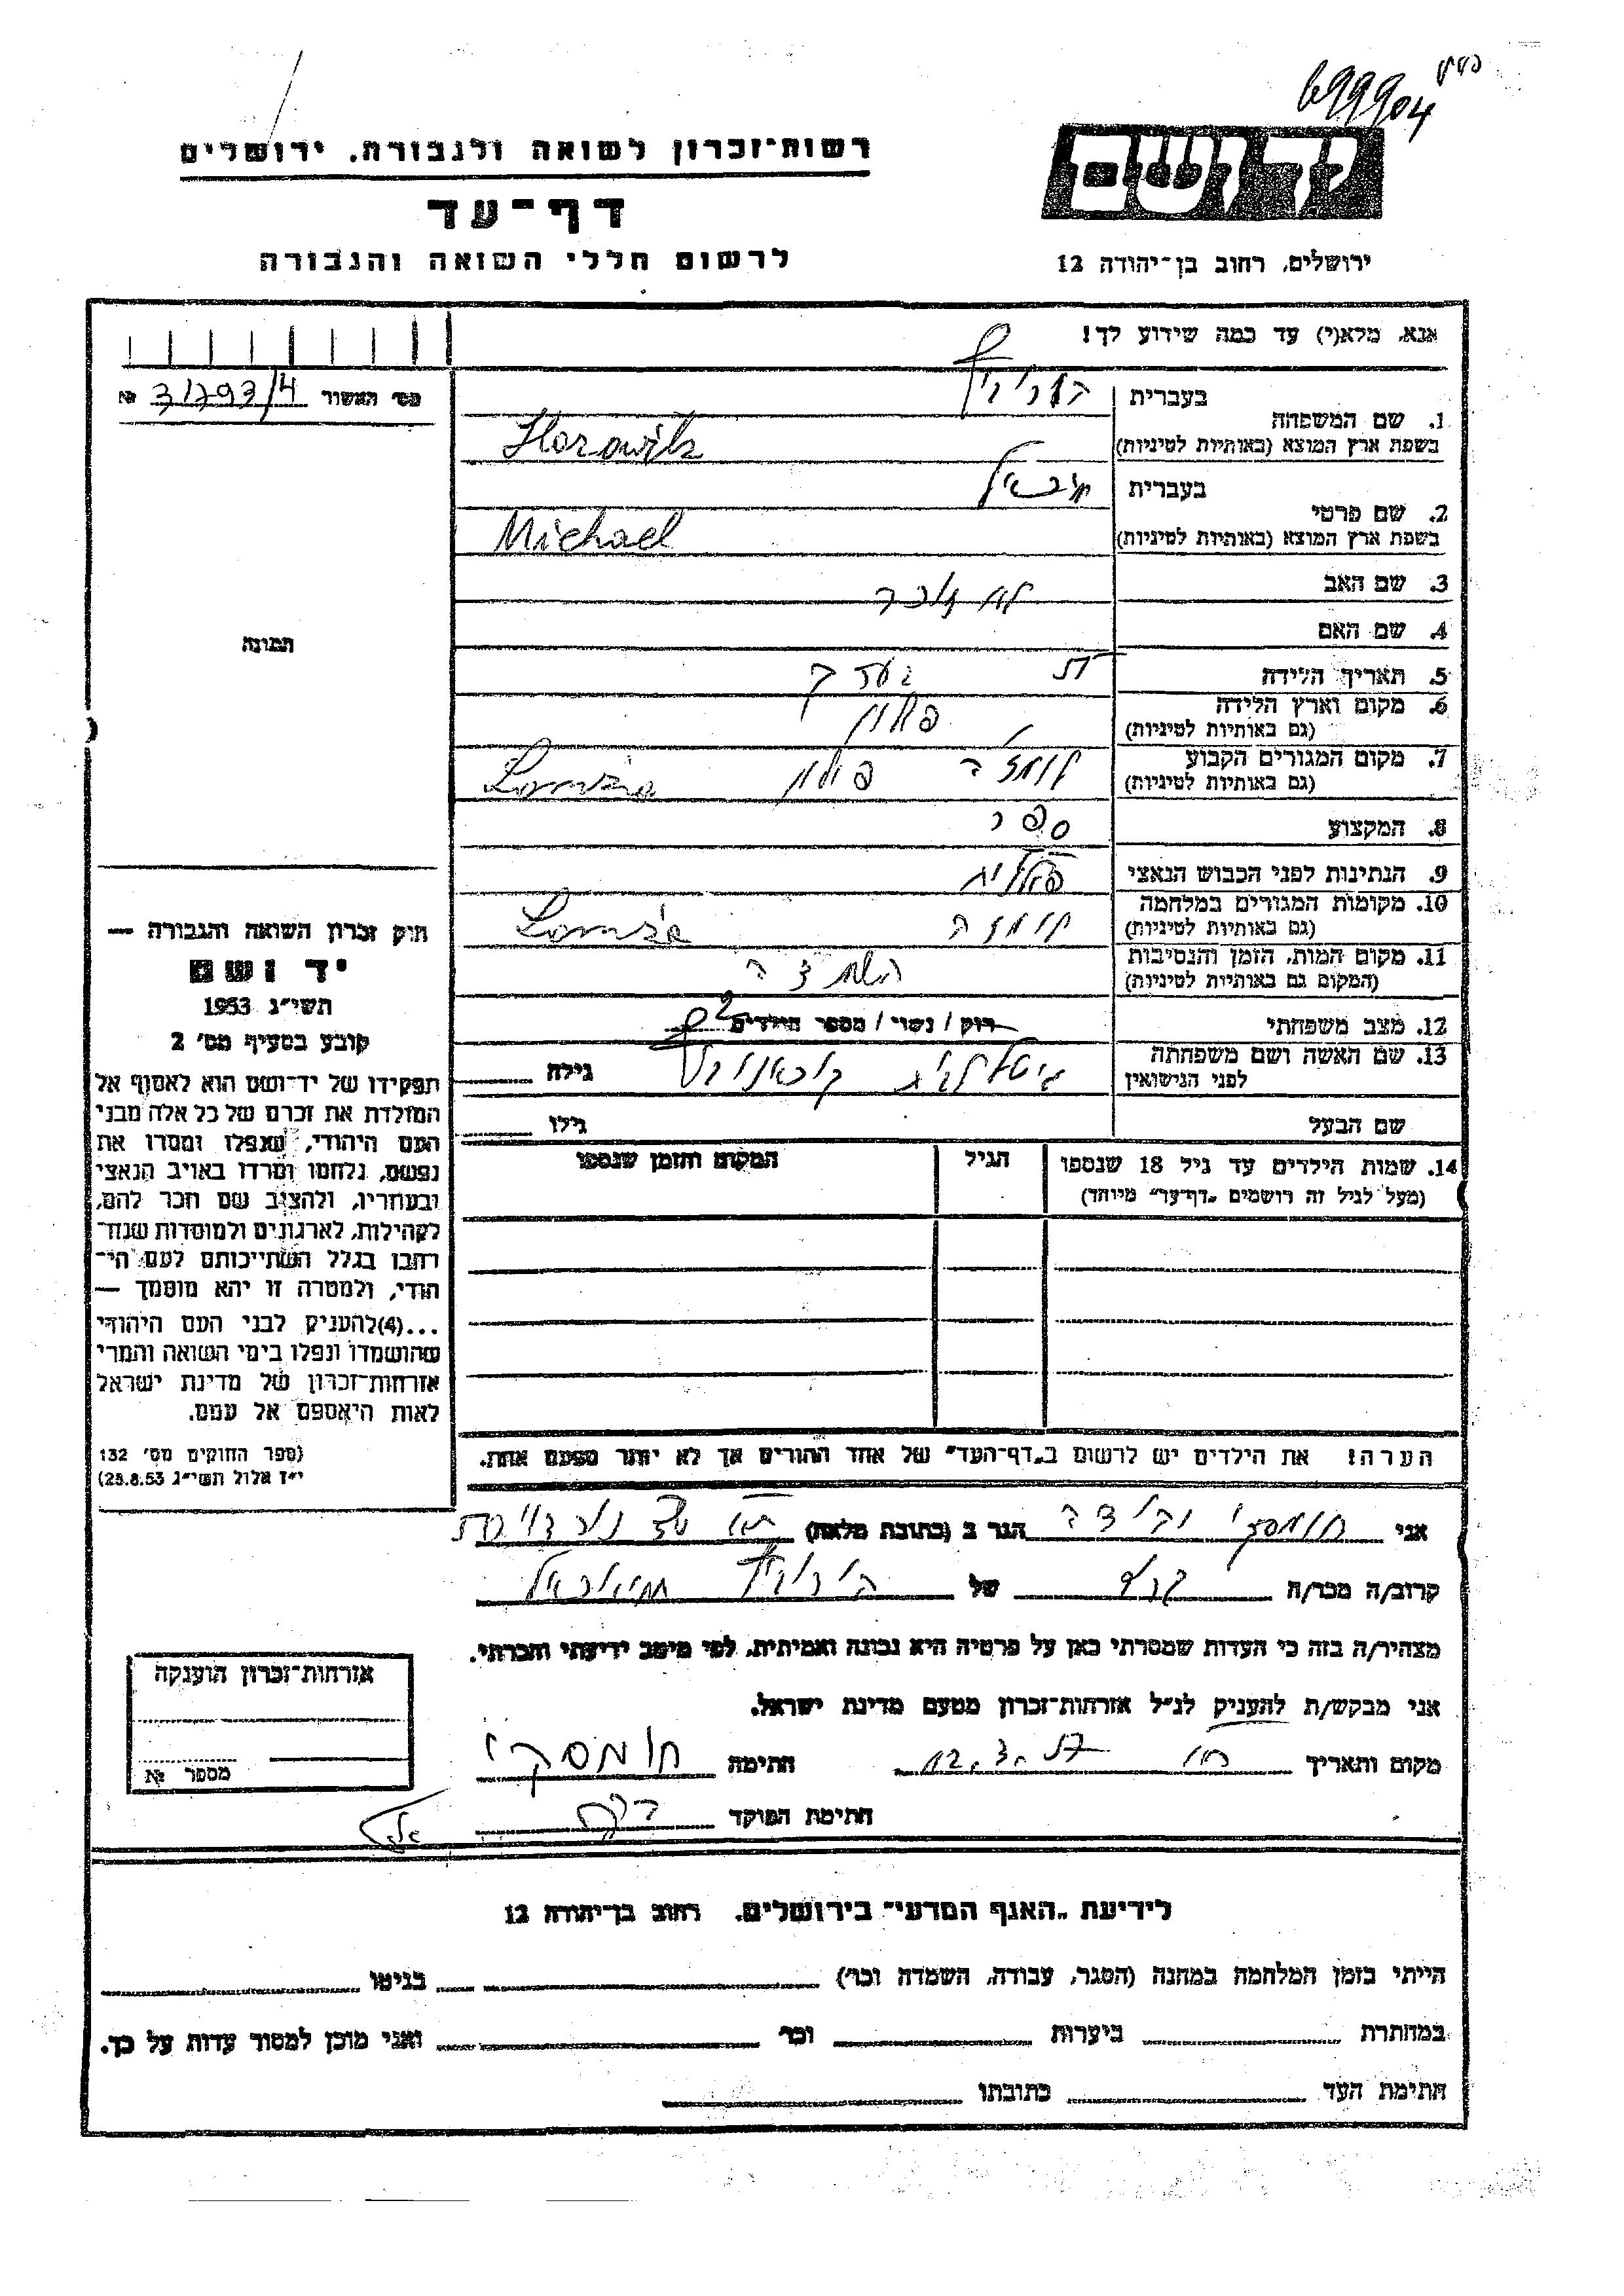 699904
רשות־זכרון לשואה ולגבורה. ירושלים
יד ושם
דף־עד
לרשום חללי השואה והגבורה
ירושלים, רחוב בן־יהודה 12
אנא, מלא(י) עד כמה שידוע לך!
מס׳ האשור № 31793/4
בעברית
1. שם המשפחה
הורוביץ
בשפת ארץ המוצא (באותיות לטיניות)
Horowitz
בעברית
מיכאל
2. שם פרטי
בשפת ארץ המוצא (באותיות לטיניות)
Michael
3. שם האב
לא זוכר
4. שם האם
תמונה
5. תאריך הלידה
6. מקום וארץ הלידה
(גם באותיות לטיניות)
פולין
7. מקום המגורים הקבוע
(גם באותיות לטיניות)
לומזה פולין Lomża
8. המקצוע
ספר
9. הנתינות לפני הכבוש הנאצי
פולנית
10. מקומות המגורים במלחמה
(גם באותיות לטיניות)
לומזה Lomża
11. מקום המות, הזמן והנסיבות
(המקום גם באותיות לטיניות)
12. מצב משפחתי
רוק / נשוי / מספר הילדים 2
13. שם האשה ושם משפחתה
לפני הנישואין
גילה
שם הבעל
גילו
14. שמות הילדים עד גיל 18 שנספו
(מעל לגיל זה רושמים „דף־עד״ מיוחד)
הגיל
המקום והזמן שנספו
חוק זכרון השואה והגבורה —
יד ושם
תשי״ג 1953
קובע בסעיף מס׳ 2
תפקידו של יד־ושם הוא לאסוף אל
המולדת את זכרם של כל אלה מבני
העם היהודי, שנפלו ומסרו את
נפשם, נלחמו ומרדו באויב הנאצי
ובעוזריו, ולהציב שם וזכר להם,
לקהילות, לארגונים ולמוסדות שנח־
רבו בגלל השתייכותם לעם הי־
הודי, ולמטרה זו יהא מוסמך —
...(4)להעניק לבני העם היהודי
שהושמדו ונפלו בימי השואה והמרי
אזרחות־זכרון של מדינת ישראל
לאות היאספם אל עמם.
(ספר החוקים מס׳ 132
י״ז אלול תשי״ג 28.8.53)
הערה! את הילדים יש לרשום ב„דף־העד״ של אחד ההורים אך לא יותר מפעם אחת.
אני חומסקי הגר ב (כתובת מלאה)
קרוב/ה מכר/ה של הורוביץ מיכאל
מצהיר/ה בזה כי העדות שמסרתי כאן על פרטיה היא נכונה ואמיתית, לפי מיטב ידיעתי והכרתי.
אני מבקש/ת להעניק לנ״ל אזרחות־זכרון מטעם מדינת ישראל.
מקום ותאריך 12.3. חתימה חומסקי
חתימת הפוקד
אזרחות־זכרון הוענקה
מספר №
לידיעת „האגף המדעי״ בירושלים, רחוב בן־יהודה 12
הייתי בזמן המלחמה במחנה (הסגר, עבודה, השמדה וכו׳) בגיטו
במחתרת ביערות וכו׳ ואני מוכן למסור עדות על כך.
חתימת העד כתובתו